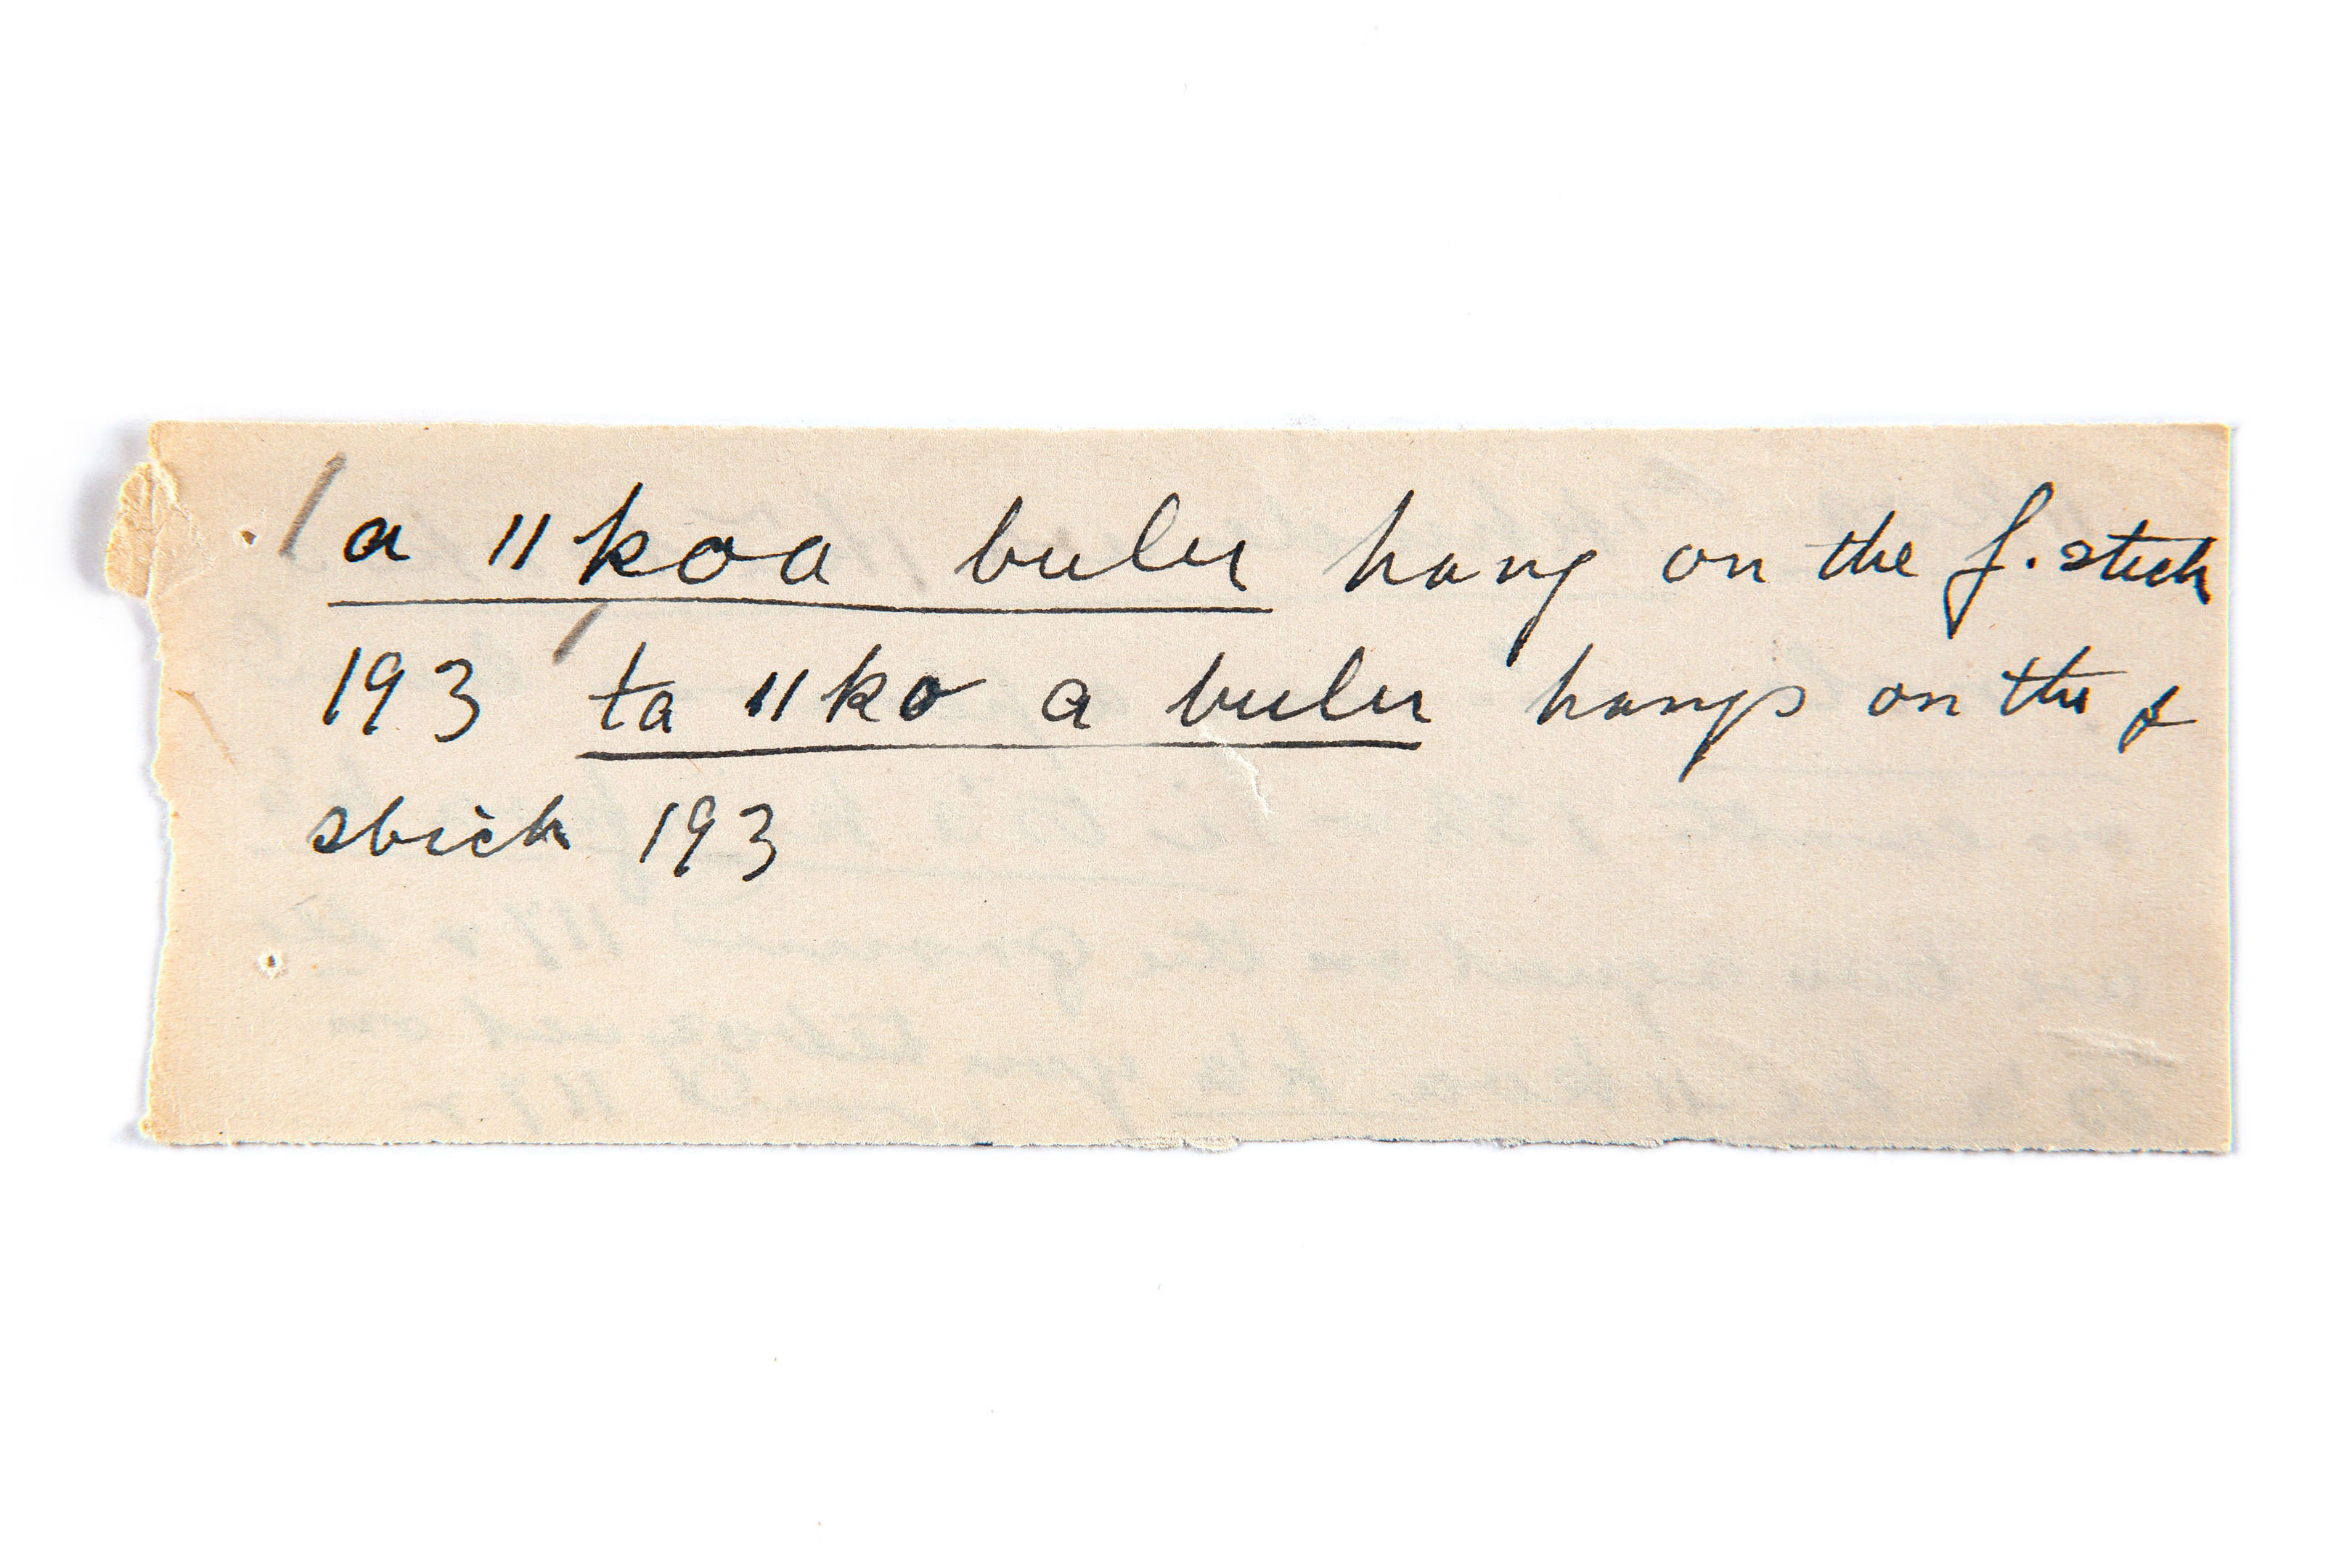 / a ‖koa buler hang on the f. stick
193 / ta ‖ko a buler hangs on the f
stick 193